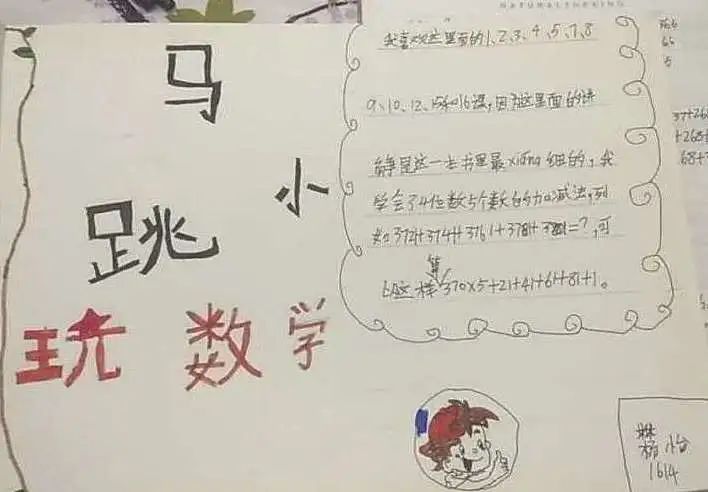 马
小
跳
玩 数 学
我喜欢这里面的1、2、3、4、5、7、8
9、10、12、15和16课,因为这里面的讲
是这一本书里最xiáng细的,我
学会了4位数与个数的加减法,列
如:3721+3741+3761+3781+
=?,可
算
这样370×5+21+41+61+81+1。
1614